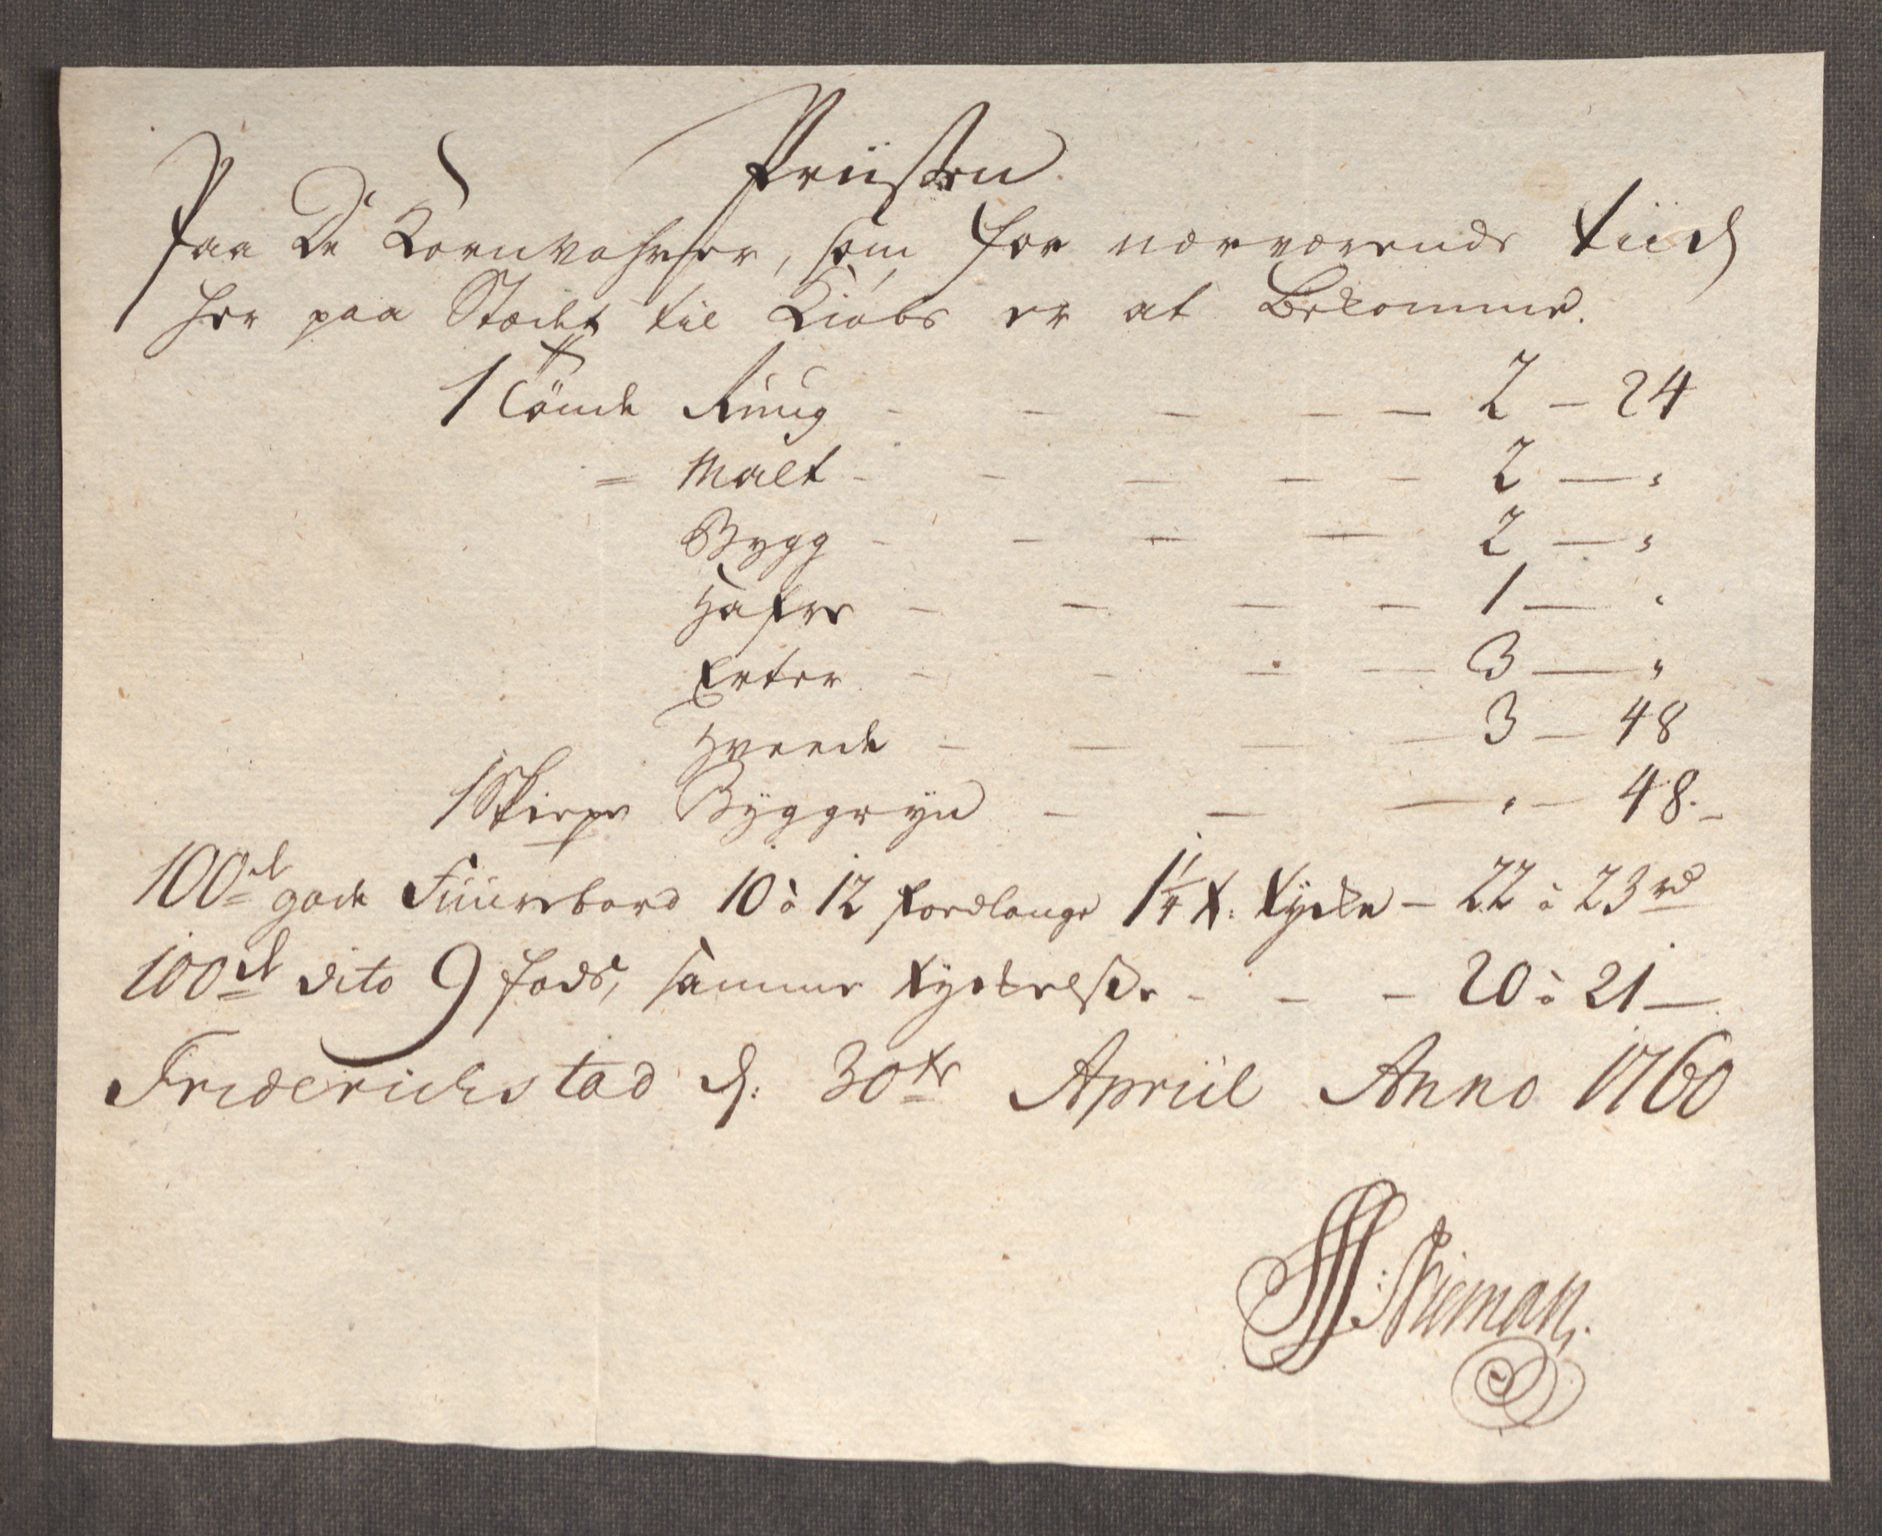 Priisen
Paa De Kornvahrer, som for nærværende tiid
her paa Stædet til Kiøbs er at Bekomme.
1 Tønde Ruug - - - - - 2 - 24
= Malt - - - - - 2 - "
Bygg - - - - 2 - "
Hafre - - - - 1 - "
Erter - - - - 3 - "
Hveede - - - - 3 - 48
1 Skiepe Byggryn - - - " - 48 -
100de gode Fuurebord 10 à 12 foedlange 1¼ t: tycke - 22 à 23 rd
100de dito 9 fods, samme tyckelse - - - 20 à 21 -
Friderichstad d: 30te Apriil Anno 1760